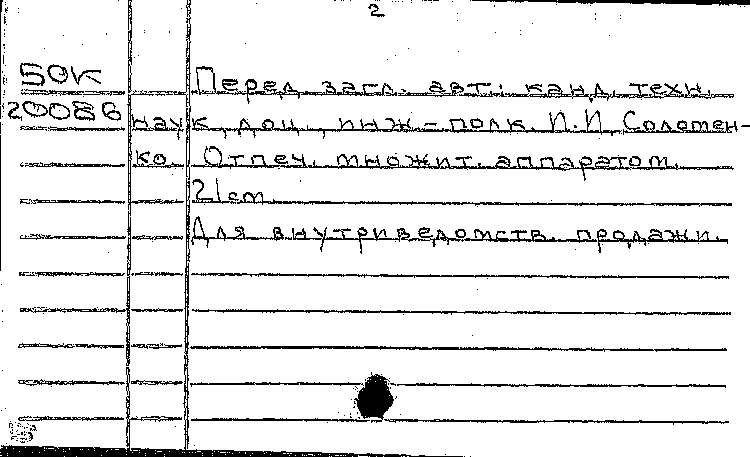 2
50К Перед загл. авт.: канд. техн.
20086 наук, доц., инж-полк. П.П. Соломен-
ко. Отпеч. множит. аппаратом.
21см.
Для внутриведомств. продажи.